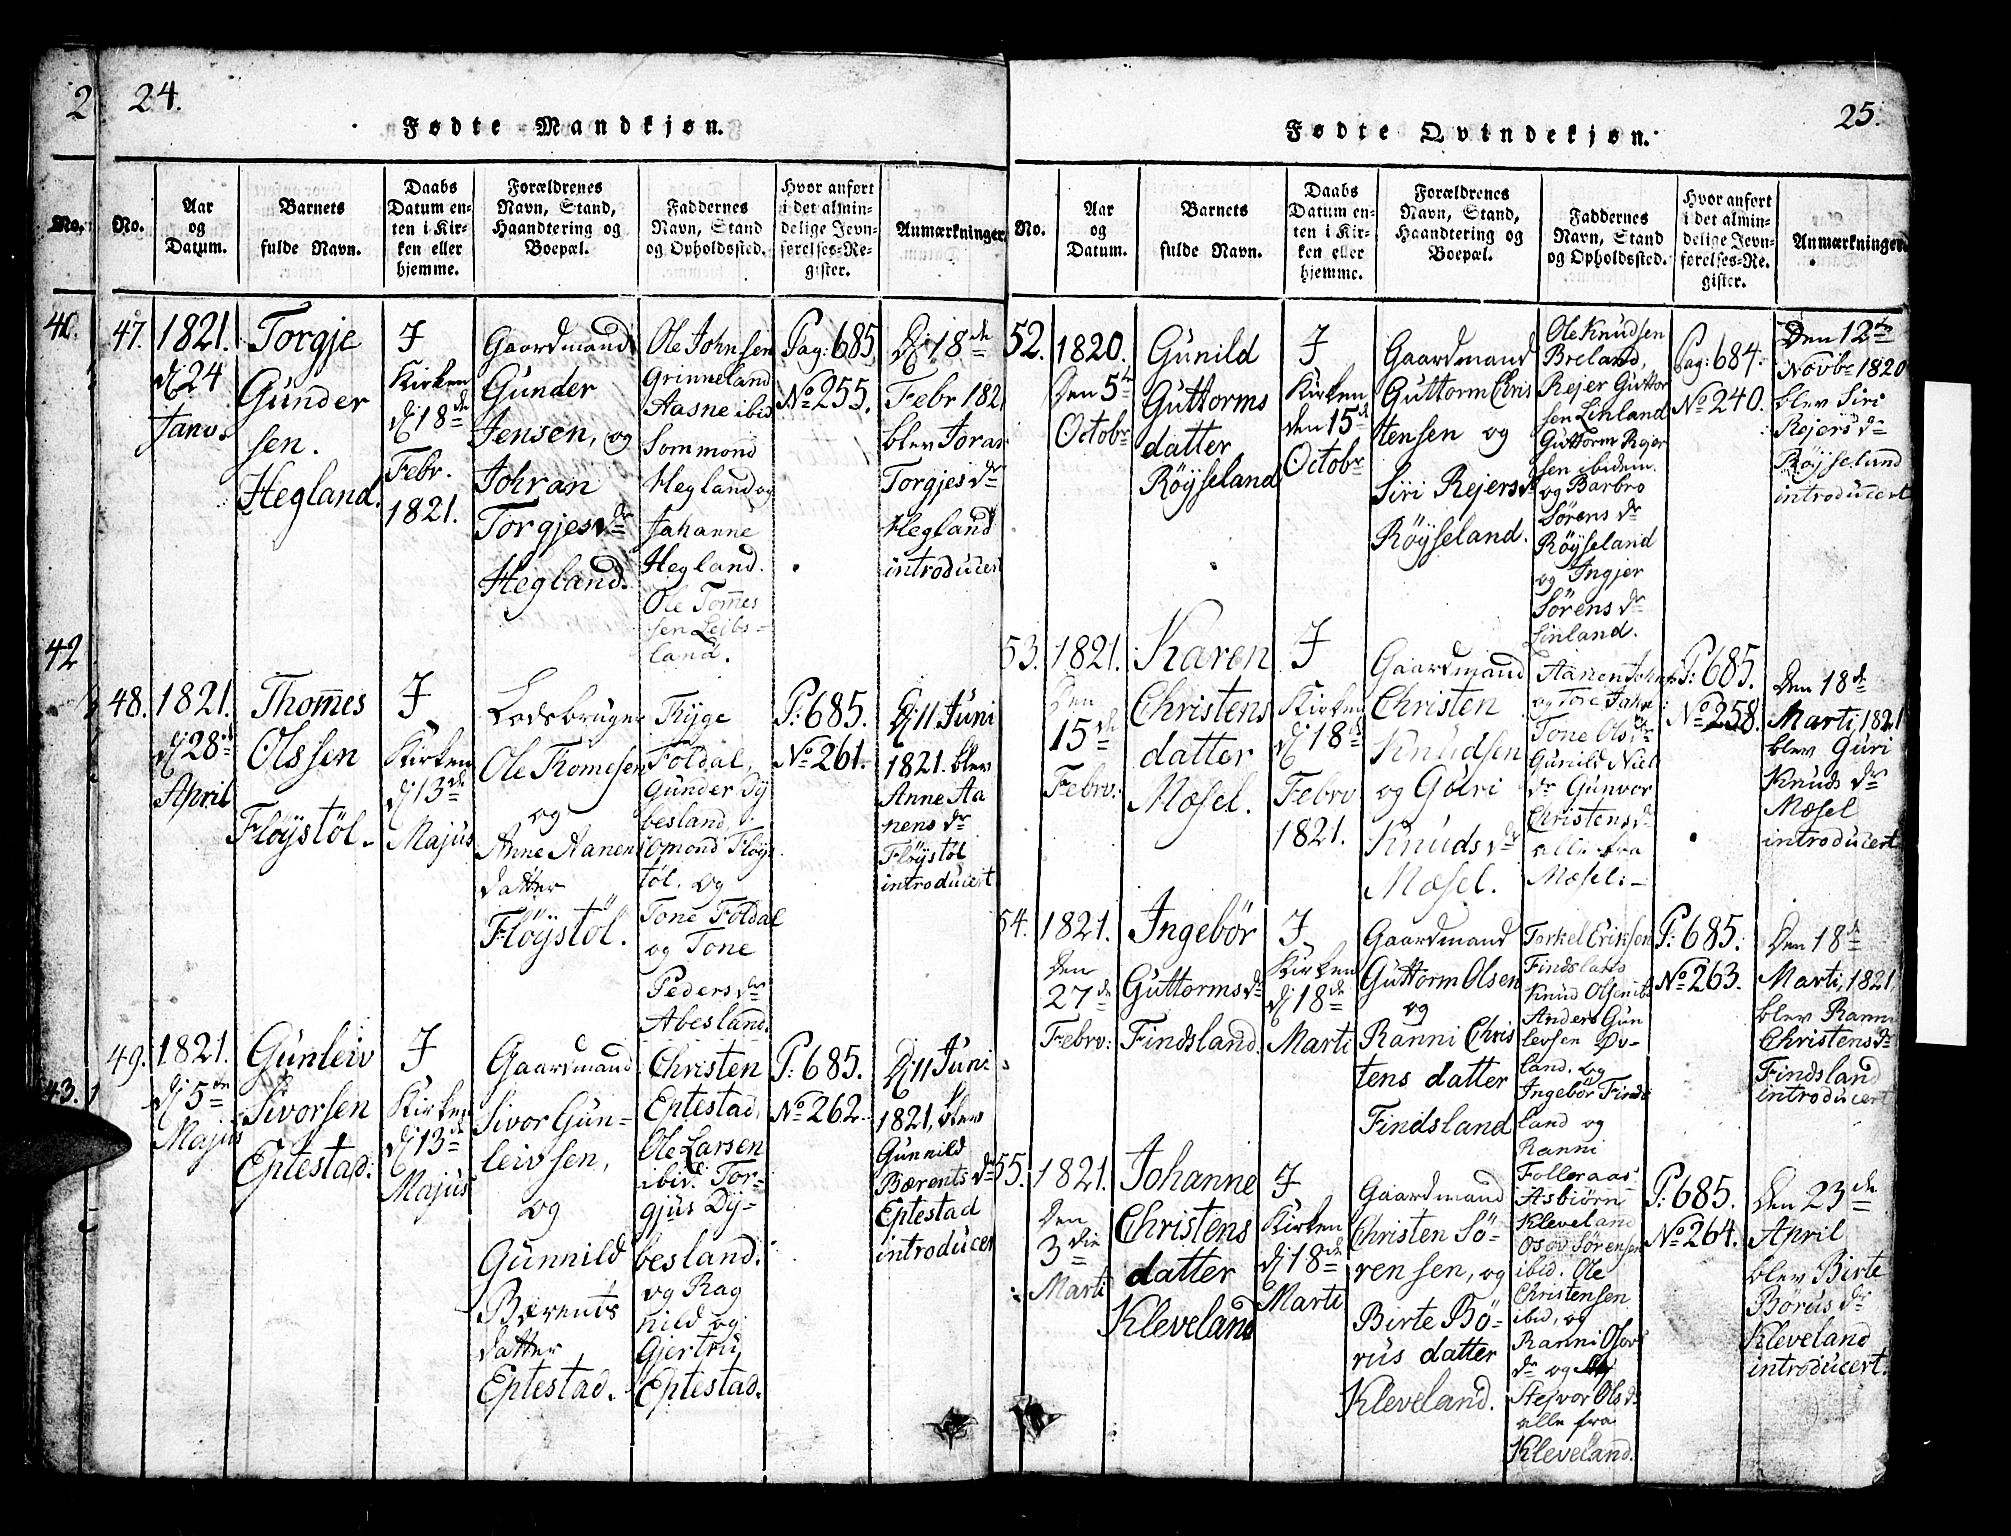 2
24.
Fødte Mandkjøn.
No.
No.
Aar
og
Datum.
Barnets
fulde Navn.
Daabs
Datum en-
ten i Kir-
ken eller
hjemme.
Forældrenes
Navn, Stand,
Haandtering og
Boepæl.
Faddernes
Navn, Stand
og Opholdssted.
Hvor anført
i det almin-
delige Jevn-
førelses-Re-
gister.
Anmærkninger.
40.
42
43.
47.
1821.
d 24
Janv.
Torgje
Gunder
sen.
Hegland.
I
Kirken
d 18de
Febr.
1821.
Gaardmand
Gunder
Jensen, og
Johran
Torgjesdr
Hegland.
Ole Johnsen
Grinneland
Aasne ibid
Sommond
Hegland og
Johanne
Hegland.
Ole Tommes
sen Leibs-
land.
Pag: 685
No 255.
D 18de
Febr 182
blev Joran
Torgjes dr
Hegland
introducert
48.
1821.
d 28de
April
Thommes
Olssen
Fløystøl.
I
Kirken
d 13de
Majus
Lodsbruger
Ole Thomesen
og
Anne Aanens
datter
Fløystøl.
Tryge
Foldal,
Gunder Dy
besland,
Omond Fløys
tøl. og
Tone Foldal
og Tone
Peders dr
Abesland.
P: 685.
No 261.
D 11 Juni
1821. blev
Anne Aa
nens dr
Fløystøl
introducert
49.
1821.
d 5te
Majus
Gunleiv
Sivorsen
Eptestad.
I
Kirken
d 13de
Majus
Gaardmand
Sivor Gun-
leivsen,
og
Gunnild
Bærents
datter
Eptestad.
Christen
Eptestad,
Ole Larsen
ibid. Tor-
gjus Dy-
besland.
og Rag
nild og
Gjertru
Eptestad.
P: 685.
No 262.
D 11 Juni
1821, blev
Gunnild
Bærents dr
Eptestad
introducer
25.
Fødte Qvindekjøn.
No.
Aar
og
Datum.
Barnets
fulde Navn.
Daabs
Datum en-
ten i Kir-
ken eller
hjemme.
Forældrenes
Navn, Stand,
Haandtering og
Boepæl.
Faddernes
Navn, Stand
og Opholdssted.
Hvor anført
i det almin-
delige Jevn-
førelses-Re-
gister.
Anmærkninger.
52.
1820.
Den 5te
Octobr
Gunild
Guttorms
datter
Røyseland
I
Kirken
den 15de
Octobr
Gaardmand
Guttorm Chris
tensen og
Siri Rejersdr
Røyseland.
Ole Knudsen
Breland,
Rejer Guttor
sen Linland
Guttorm Rejer
sen ibidem.
og Barbro
Sørens dr
Røyseland
og Ingjer
Sørens dr
Linland.
Pag: 684.
No 240.
Den 12te
Novbr 1820
blev Siri
Rejers dr
Røyseland
introducert
53.
1821.
Den
15de
Febrv.
Karen
Christens
datter
Mosel.
I
Kirken
d 18de
Febrv
1821.
Gaardmand
Christen
Knudsen
og Guri
Knuds dr
Mosel.
Aanen Johns
og Tore Jahn
Tone Ols dr
Gunild Niels
dr Gunvor
Christens dr
alle fra
Mosel.
P: 685.
No 258.
Den 18de
Marti, 1821
blev Guri
Knuds dr
Mosel
introducert.
54.
1821.
Den
27de
Febrv:
Ingebør
Guttorms dr
Findsland.
I
Kirken
d 18de
Marti
Gaardmand
Guttorm Olsen
og
Ranni Chris
tens datter
Findsland
Torkel Eriksen
Findsland
Knud Olsen ib
Anders Gun
levsen Øv-
land. og
Ingebør Finds
land og
Ranni
Folleraas
P: 685.
No 263.
Den 18de
Marti, 1821,
blev Ranni
Christens dr
Findsland
introducert
55.
1821.
Den
3die
Marti
Johanne
Christens
datter
Kleveland
I
Kirken
d 18de
Marti
Gaardmand
Christen Sø-
rensen, og
Birte Bø-
rus datter
Kleveland.
Asbiørn
Kleveland
Osov Sørensen
ibid. Ole
Christensen
ibid, og
Ranni Osovs
dr og
Stejvor Ols dr
alle fra
Kleveland.
P: 685.
No 264.
Den 23de
April
blev Birte
Børus dr
Kleveland
introducert.